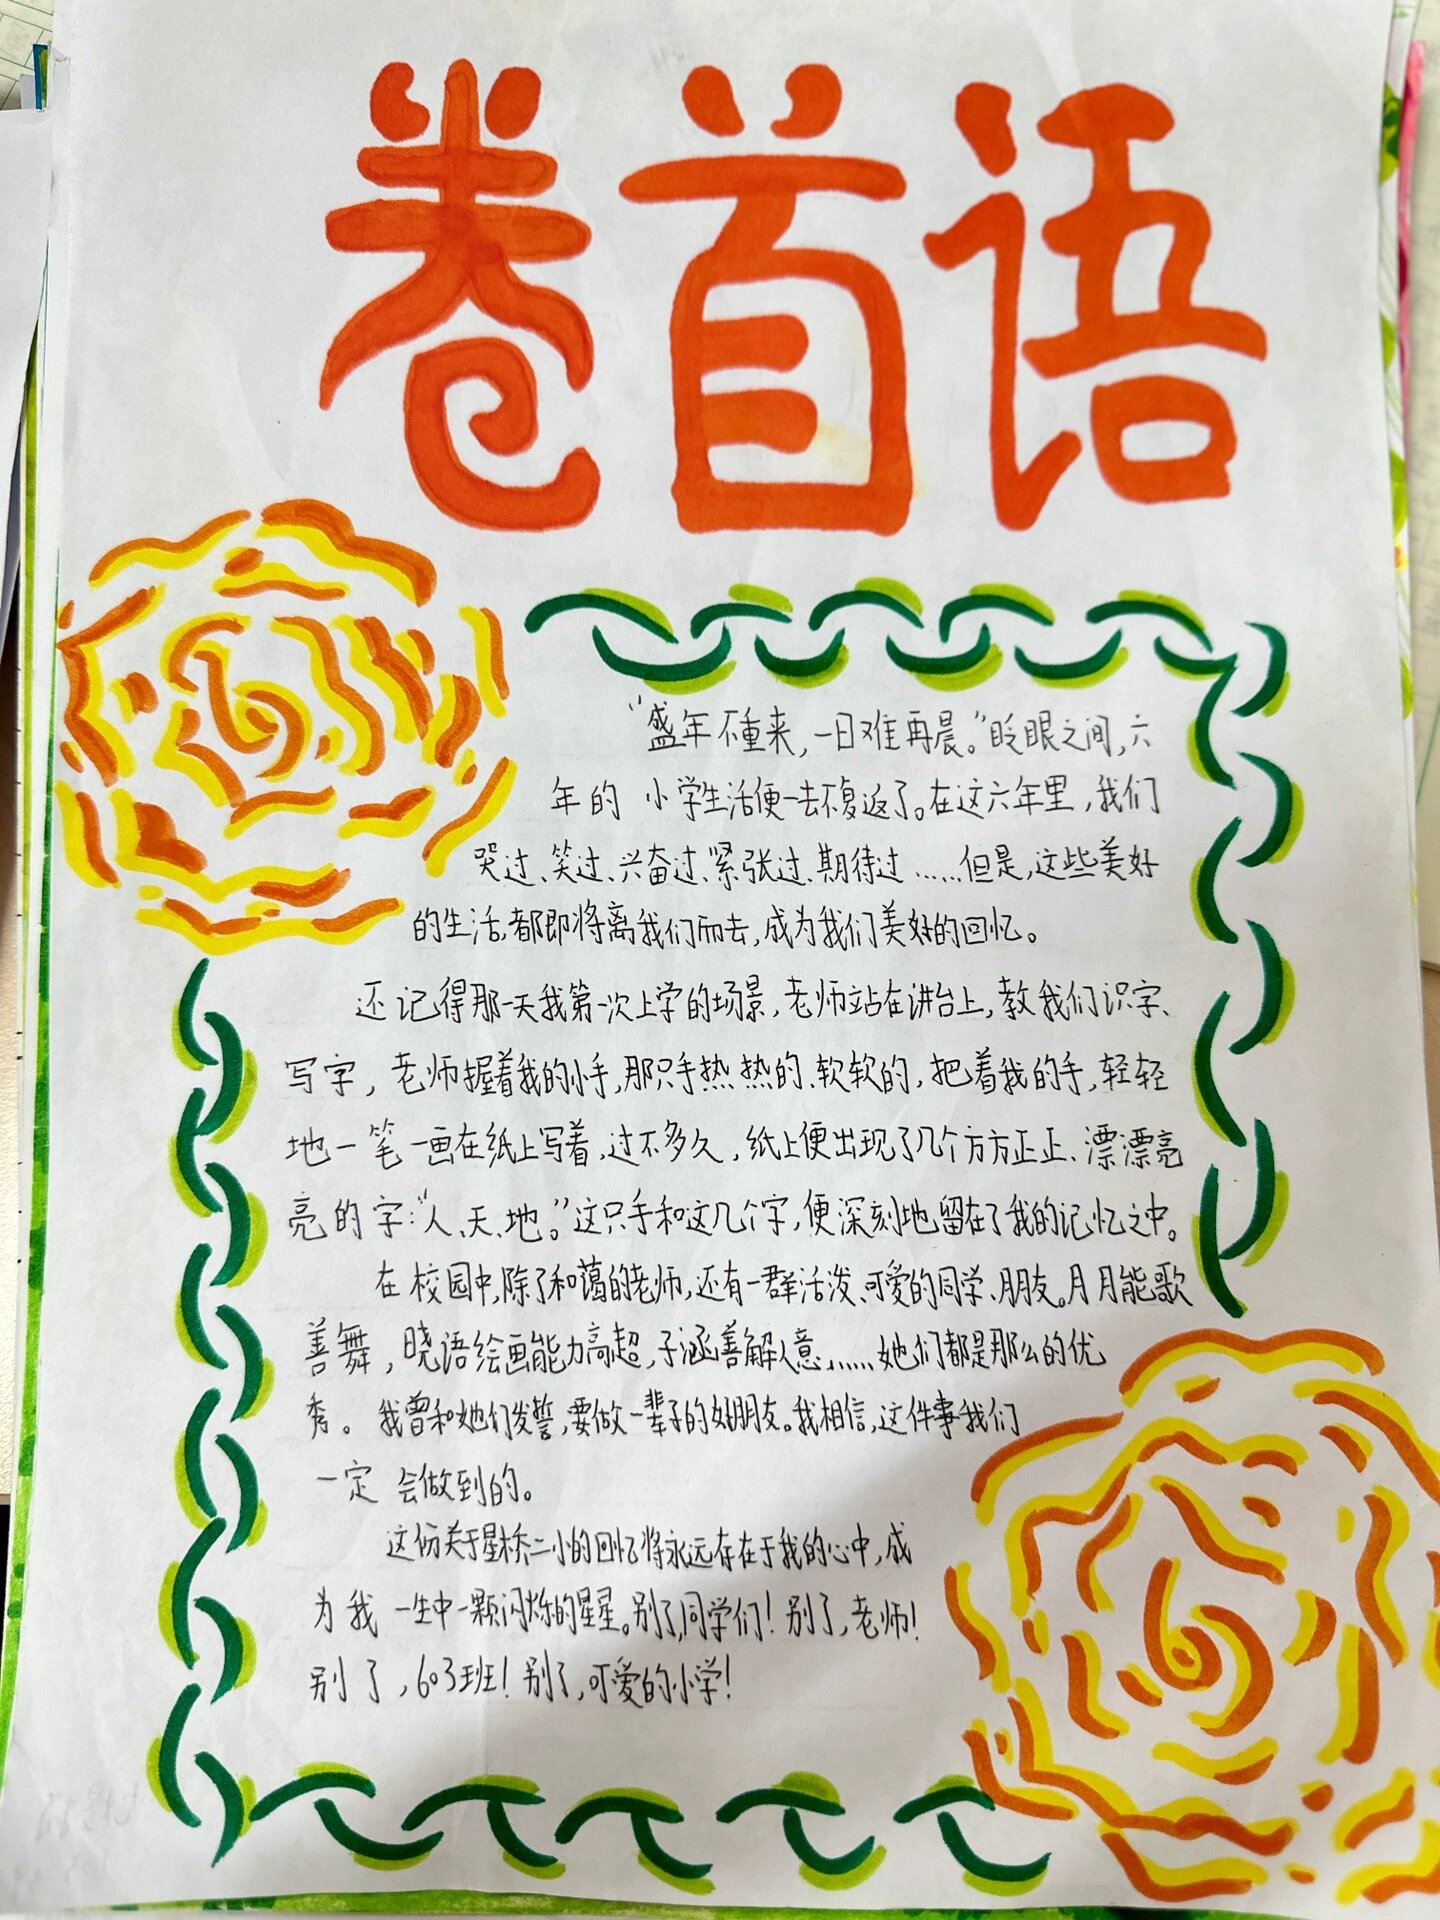 卷首语
“盛年不重来,一日难再晨。”眨眼之间,六
年的小学生活便一去不复返了。在这六年里,我们
哭过、笑过、兴奋过、紧张过、期待过……但是,这些美好
的生活,都即将离我们而去,成为我们美好的回忆。
还记得那一天我第一次上学的场景,老师站在讲台上,教我们识字、
写字,老师握着我的小手,那只手热热的、软软的,把着我的手,轻轻
地一笔一画在纸上写着,过不多久,纸上便出现了几个方方正正、漂漂亮
亮的字:“人、天、地。”这只手和这几个字,便深刻地留在了我的记忆之中。
在校园中,除了和蔼的老师,还有一群活泼、可爱的同学、朋友。月月能歌
善舞,晓语绘画能力高超,子涵善解人意……她们都是那么的优
秀。我曾和她们发誓,要做一辈子的好朋友。我相信,这件事我们
一定会做到的。
这份关于星桥二小的回忆将永远存在于我的心中,成
为我一生中一颗闪烁的星星。别了,同学们!别了,老师!
别了,603班!别了,可爱的小学!